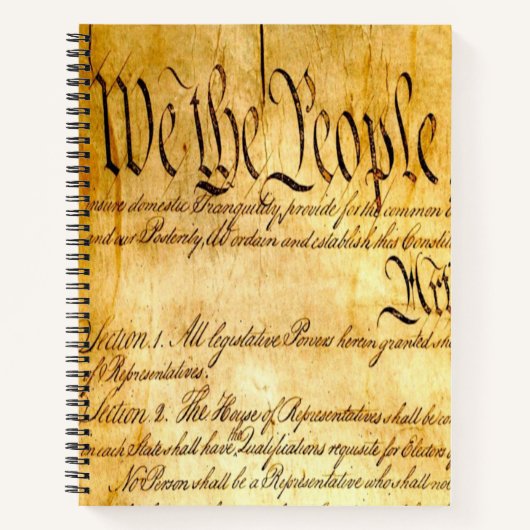 We the People
insure domestic Tranquility, provide for the common
and our Posterity, do ordain and establish this Constit
Arti
Section. 1. All legislative Powers herein granted sha
of Representatives.
Section. 2. The House of Representatives shall be co
in each State shall have the Qualifications requisite for Electors of
No Person shall be a Representative who shall not